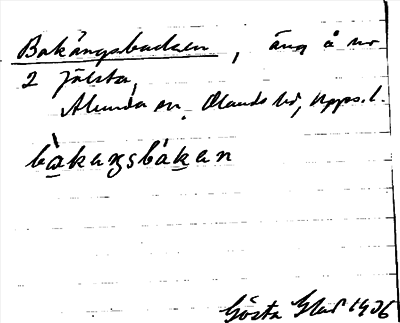 Bakängsbacken, äng å nr
2 Jälsta,
Alunda sn. Olands hd, Upps. l.
bàkaŋsbakan
Gösta Glad 1936